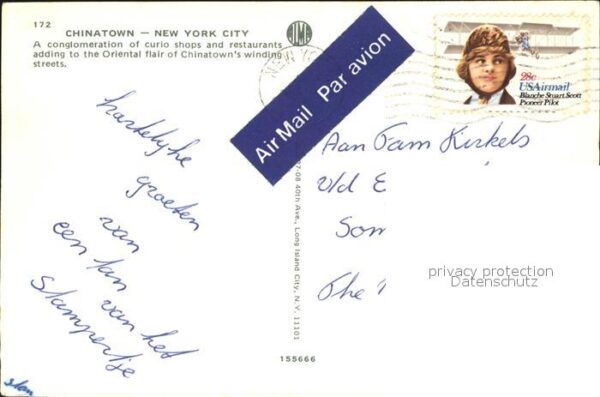 172
CHINATOWN — NEW YORK CITY
A conglomeration of curio shops and restaurants
adding to the Oriental flair of Chinatown's winding
streets.
Air Mail Par avion
28c
USAirmail
Blanche Stuart Scott
Pioneer Pilot
hartelijke
groeten
van
een fan
van het
Stampertje
Aan Fam Kirkels
v/d E
Som
The
40th Ave., Long Island City, N.Y. 11101
155666
privacy protection
Datenschutz